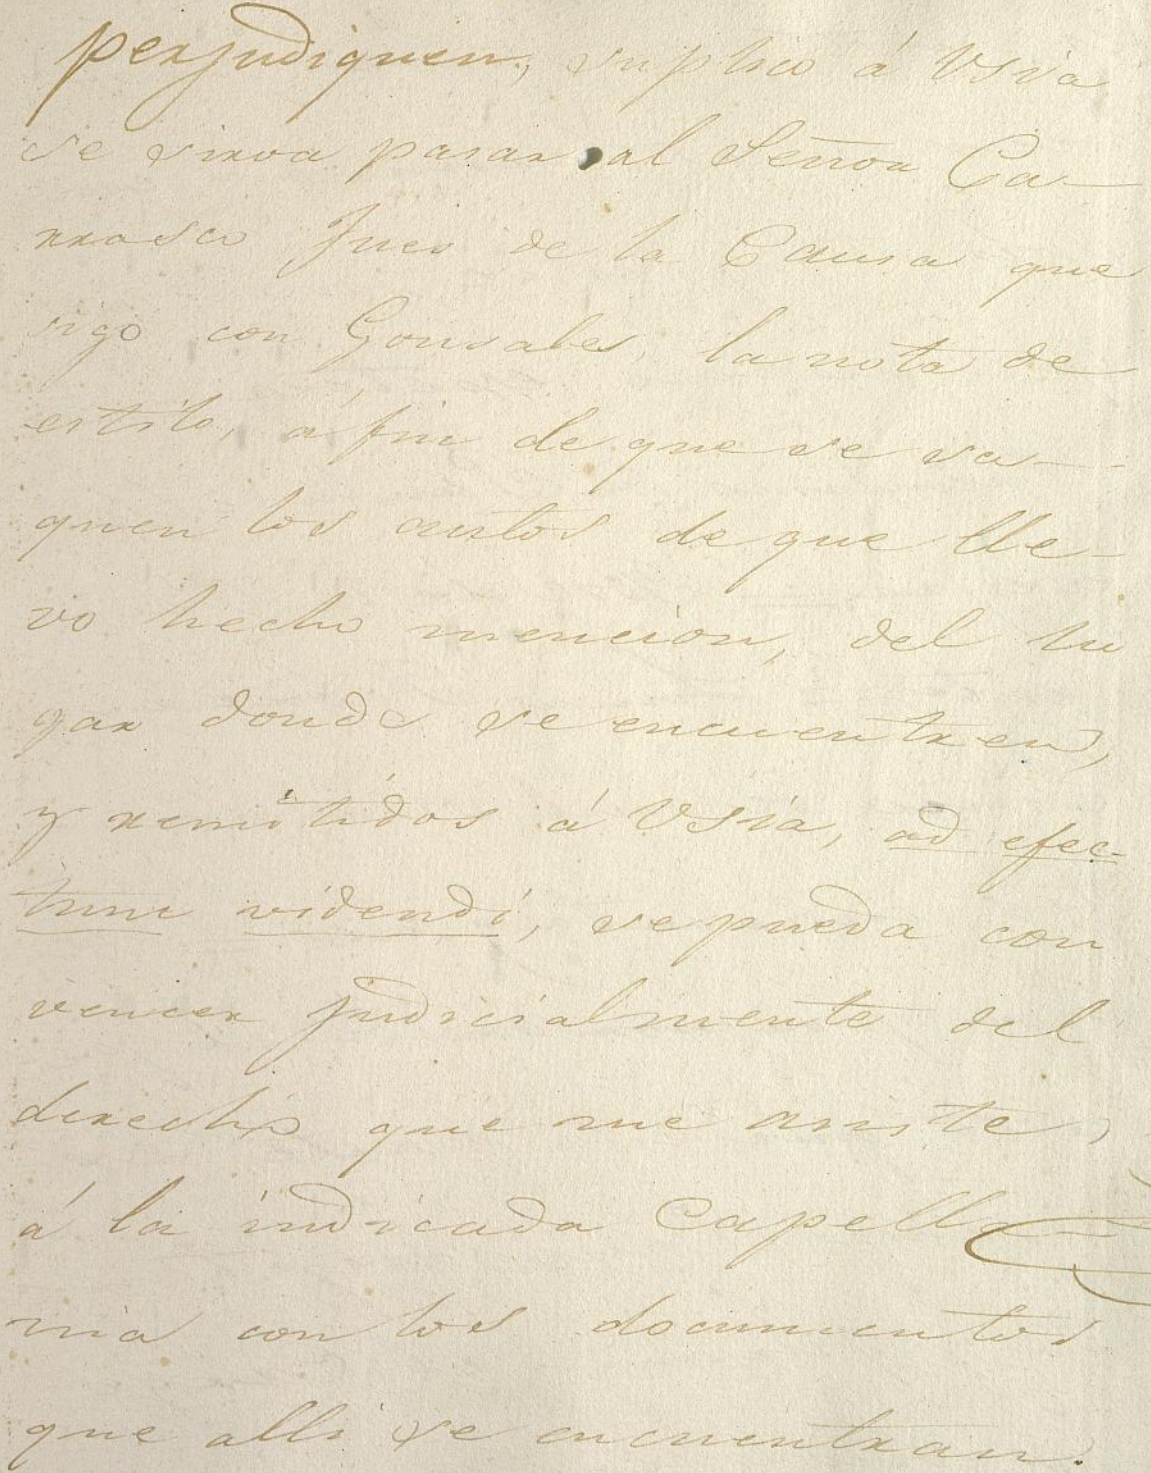 perjudiquen, suplico á Vsía
se sirva pasar al Señor Ca-
rrasco Jues de la Causa que
sigo con Gonsales, la nota de
estilo, á fin de que se sa-
quen los autos de que lle-
vo hecho mencion, del lu
gar donde se encuentren,
y remitidos á Vsía, ad efec-
tum videndi, se pueda con
vencer judicialmente del
derecho que me asiste,
á la indicada Capella
nia con los documentos
que alli se encuentran.